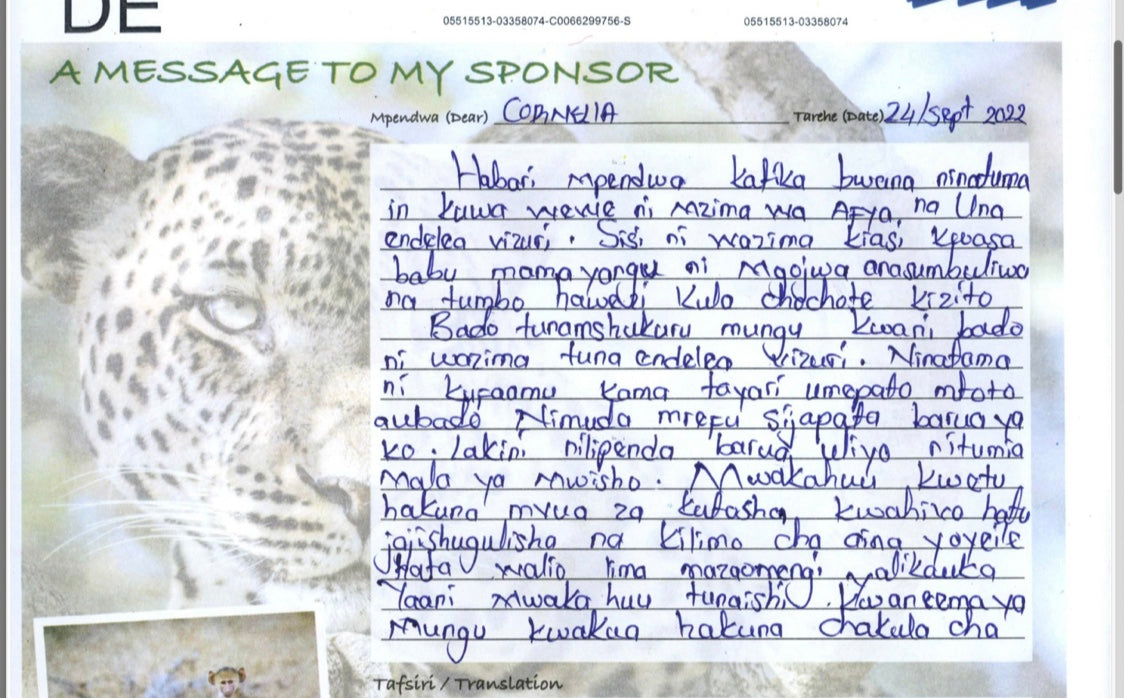 DE
05515513-03358074-C0066299756-S
05515513-03358074
A MESSAGE TO MY SPONSOR
Mpendwa (Dear) CORNELIA Tarehe (Date) 24/Sept 2022
Habari mpendwa katika bwana ninatuma
in kuwa wewe ni mzima wa AFYA, na Una
endelea vizuri. Sisi ni wazima kiasi kwasa
babu mama yangu ni Mgojwa anasumbuliwa
na tumbo hawezi Kula chochote kizito
Bado tunamshukuru mungu kwani bado
ni wazima tuna endelea vizuri. Ninatama
ni kufaamu kama tayari umepata mtoto
aubado Nimuda mrefu sijapata barua ya
ko. lakini nilipenda barua uliyo nitumia
Mala ya Mwisho. Mwakahuu kwetu
hakuna mvua za kutosha kwahivo hatu
jajishugulisha na kilimo cha aina yoyeile
Hata walio lima mazaomengi yalikauka
Yaani Mwaka huu tunaishi Kwaneema ya
Mungu kwakua hakuna chakula cha
Tafsiri / Translation